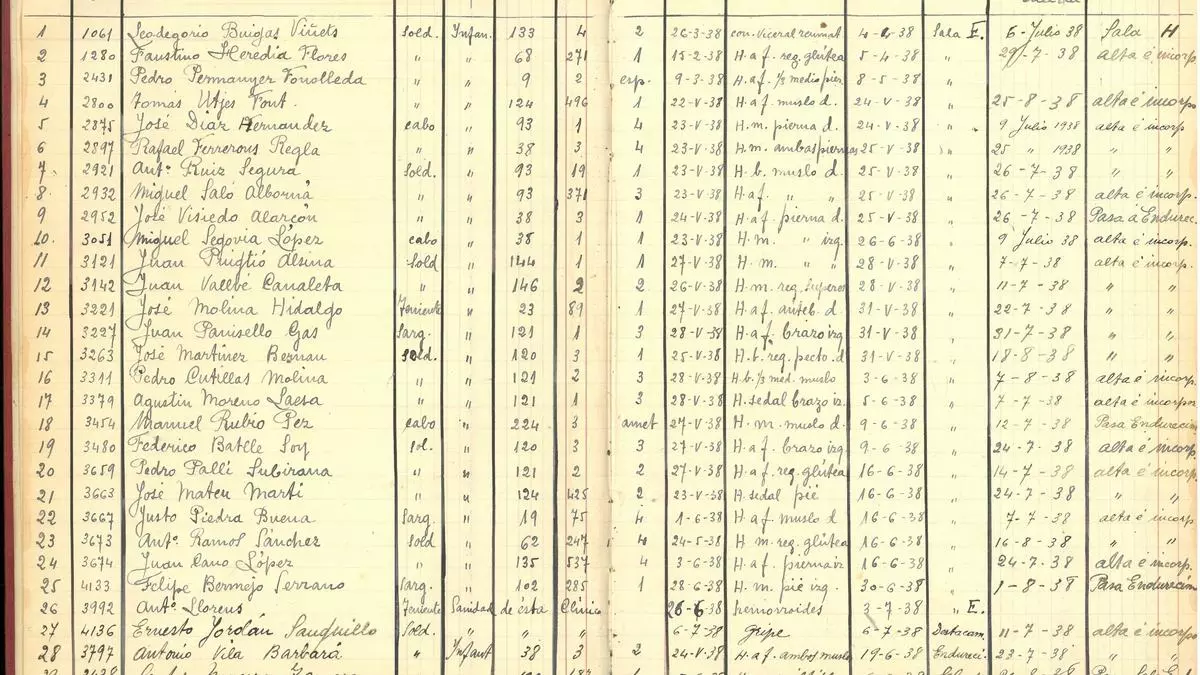 1 1061 Leodegorio Buigas Viñets Sold. Infan. 133 4 2 26-3-38 con. viceral reumat 4-6-38 Sala E. 6-Julio 38 Sala H
2 1280 Faustino Heredia Flores " " 68 271 1 15-2-38 H. a f. reg. glútea 5-4-38 " 29-7-38 alta é incorp
3 2431 Pedro Permanyer Fonolleda " " 9 2 esp. 9-3-38 H. af. ⅓ medio pier 8-5-38 "
4 2800 Tomás Utjes Font. " " 124 496 1 22-V-38 H. a f. muslo d. 24-V-38 " 25-8-38 alta é incorp
5 2875 José Díaz Hernandez cabo " 93 1 4 23-V-38 H. m. pierna d. 24-V-38 " 9 Julio 1938 alta é incorp
6 2897 Rafael Ferrerous Regla " " 38 3 4 23-V-38 H. m. ambas piernas 25-V-38 " 25 " 1938 " "
7 2921 Antº Ruiz Segura Sold. " 93 19 1 23-V-38 H. b. muslo d. 25-V-38 " 26-7-38 " "
8 2932 Miguel Saló Alborná " " 93 371 3 23-V-38 H. af. " " 25-V-38 " 26-7-38 alta é incorp.
9 2952 José Visiedo Alarcón " " 38 3 1 24-V-38 H. a f. pierna d. 25-V-38 " 26-7-38 Pasa á Endurec.
10. 3051 Miguel Segovia López cabo " 38 1 1 23-V-38 H. m. " izq. 26-6-38 " 9 Julio 38 alta é incorp.
11 3121 Juan Puigtió Alsina Sold " 144 1 1 27-V-38 H. m. " d. 28-V-38 " 7-7-38 alta é incorp.
12 3142 Juan Vallbé Canaleta " " 146 2 2 26-V-38 H. m. reg. superor 28-V-38 " 11-7-38 " "
13 3221 José Molina Hidalgo Teniente " 23 89 1 27-V-38 H. af. anteb. d 31-V-38 " 22-7-38 " "
14 3227 Juan Panisello Gas Sarg. " 121 1 3 28-V-38 H. a f. brazo izq 31-V-38 " 31-7-38 " "
15 3263 José Martínez Bernau Sold. " 120 3 1 25-V-38 H. b. reg. pecto. d 31-V-38 " 18-8-38 " "
16 3311 Pedro Cutillas Molina " " 121 2 3 28-V-38 H. b. ⅓ med. muslo 3-6-38 " 7-8-38 alta é incorp.
17 3379 Agustin Moreno Saesa " " 121 1 3 28-V-38 H. sedal brazo iz. 5-6-38 " 7-7-38 alta é incorp
18 3454 Manuel Rubio Pez cabo " 224 3 amet 27-V-38 H. m. muslo d. 9-6-38 " 12-7-38 Pasa Endurecion
19 3480 Federico Batlle Soy sol. " 120 3 3 27-V-38 H. a f. brazo izq. 9-6-38 " 24-7-38 alta é incorp
20 3659 Pedro Pallí Subirana " " 121 2 2 27-V-38 H. a f. reg. glútea 16-6-38 " 14-7-38 alta é incorp.
21 3663 José Mateu Martí " " 124 425 2 23-V-38 H. sedal pié 16-6-38 " 24-7-38 " "
22 3667 Justo Piedra Buena Sarg. " 19 75 4 1-6-38 H. a f. muslo d 16-6-38 " 7-7-38 alta é incorp
23 3673 Antº Ramos Sánchez Sold " 62 247 4 24-5-38 H. m. reg. glútea 16-6-38 " 16-8-38 " "
24 3674 Juan Cano López " " 135 537 4 3-6-38 H. a f. pierna iz 16-6-38 " 24-7-38 alta é incorp.
25 4133 Felipe Bermejo Serrano Sarg. " 102 285 1 28-6-38 H. m. pié izq. 30-6-38 " 1-8-38 Pasa Endurecion
26 3992 Antº Llorens Teniente Sanidad de esta Clínica 26-6-38 hemorroides 3-7-38 " E.
27 4136 Ernesto Jordán Sauquillo Sold. " " " 6-7-38 gripe 6-7-38 Destacam. 11-7-38 alta é incorp
28 3797 Antonio Vila Barbará " Infant 38 3 2 24-V-38 H. a f. ambos muslo 19-6-38 Endureci. 23-7-38 " "